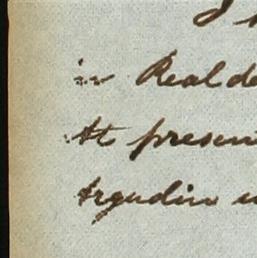 in Real de
At presen
Argudin